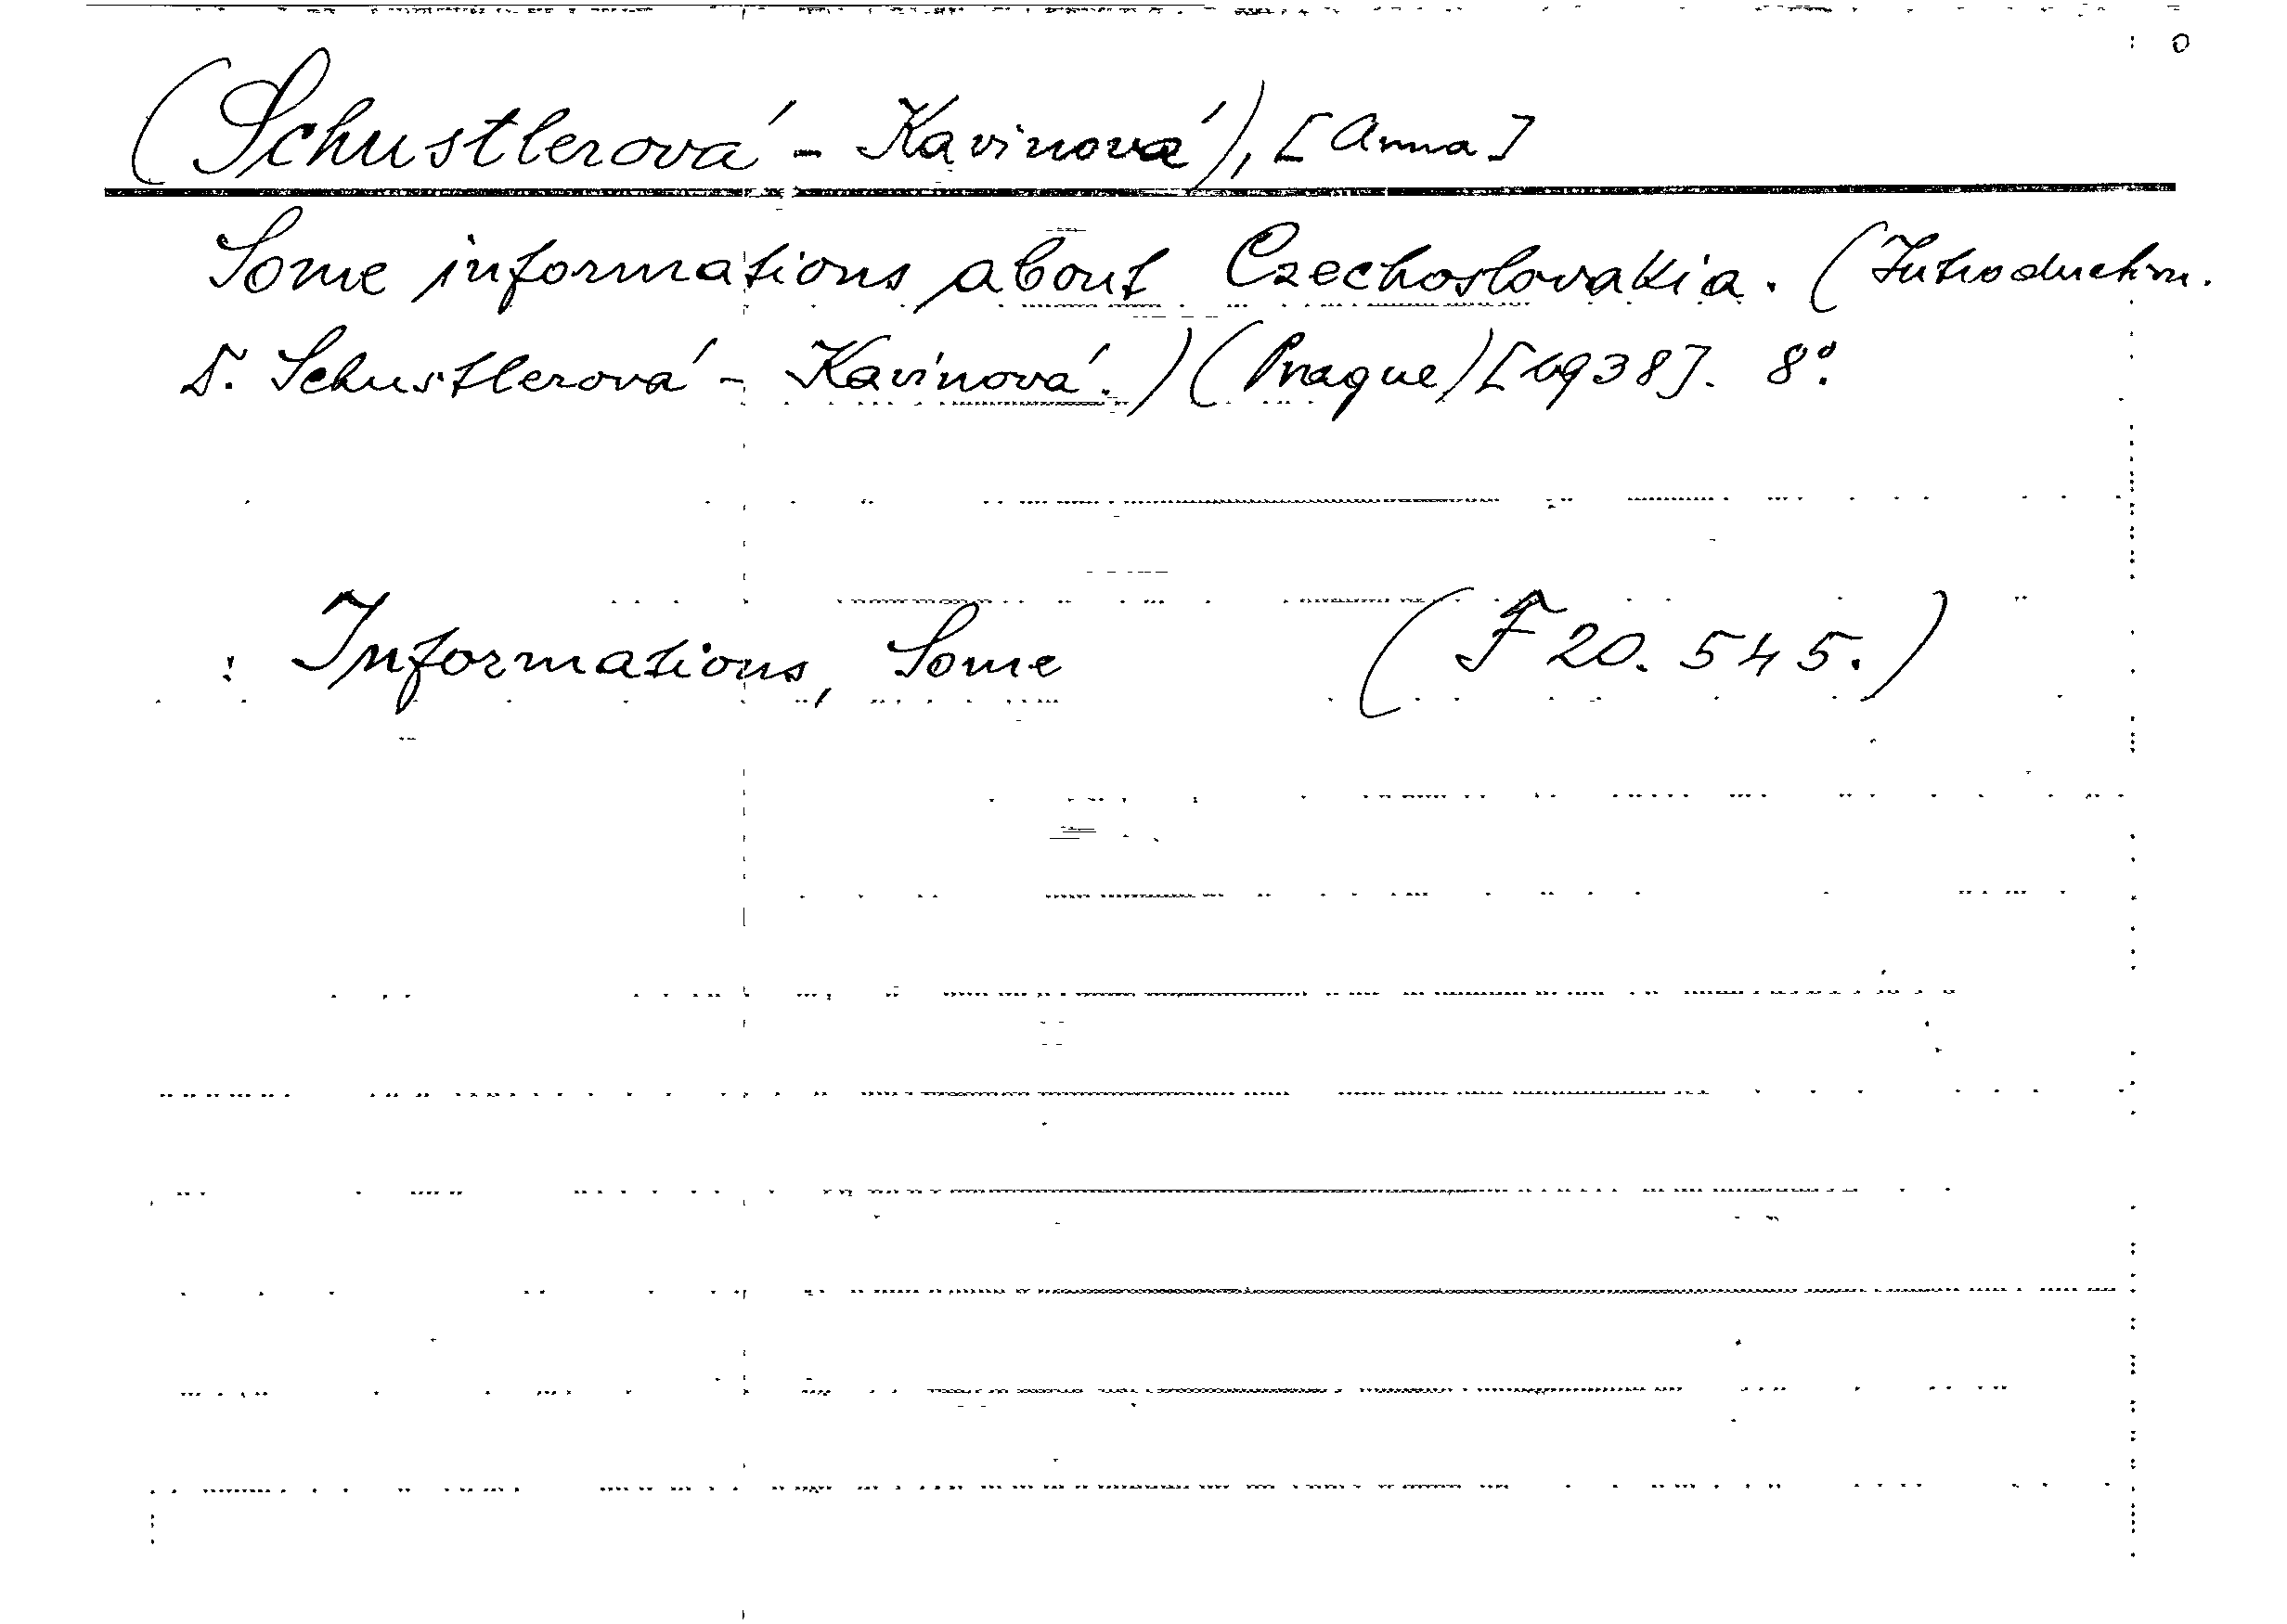 (Schustlerová - Kavinová), [Anna]
Some informations about Czechoslovakia. (Introduction.
S. Schustlerová - Kavinová.) (Prague) [1938]. 8°.
: Informations, Some (F 20.545.)